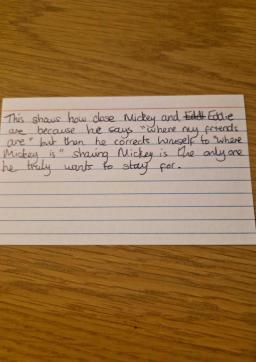 This shows how close Mickey and Eddi Eddie
are because he says "where my friends
are" but then he corrects himself to "where
Mickey is" showing Mickey is the only one
he truly wants to stay for.